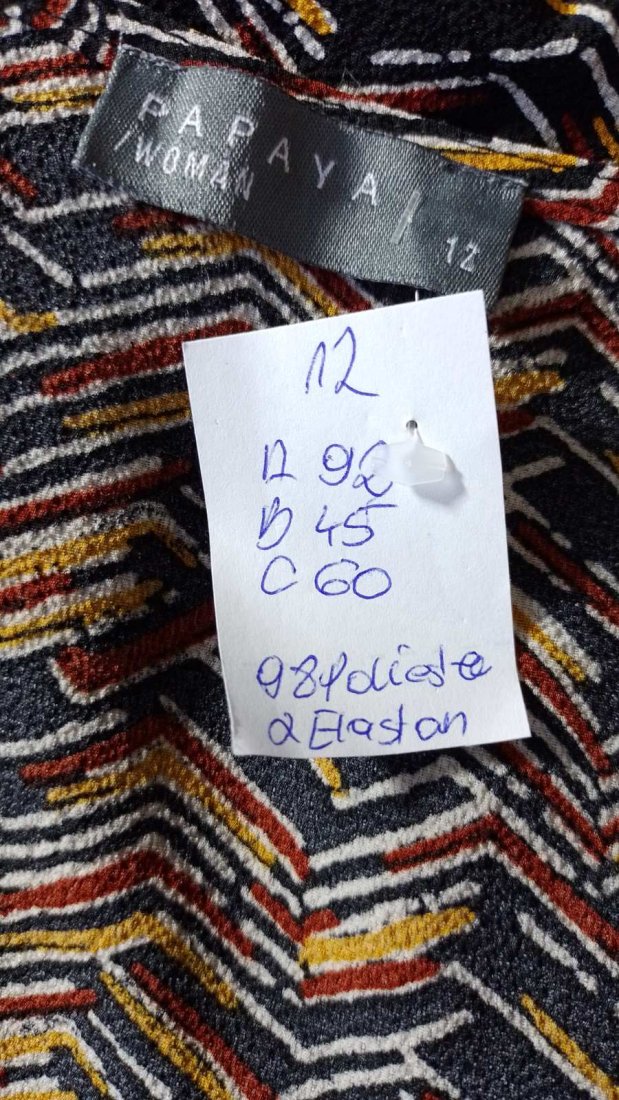 PAPAYA
/WOMAN
12
12
A 92
B 45
C 60
98 poliester
2 Elastan